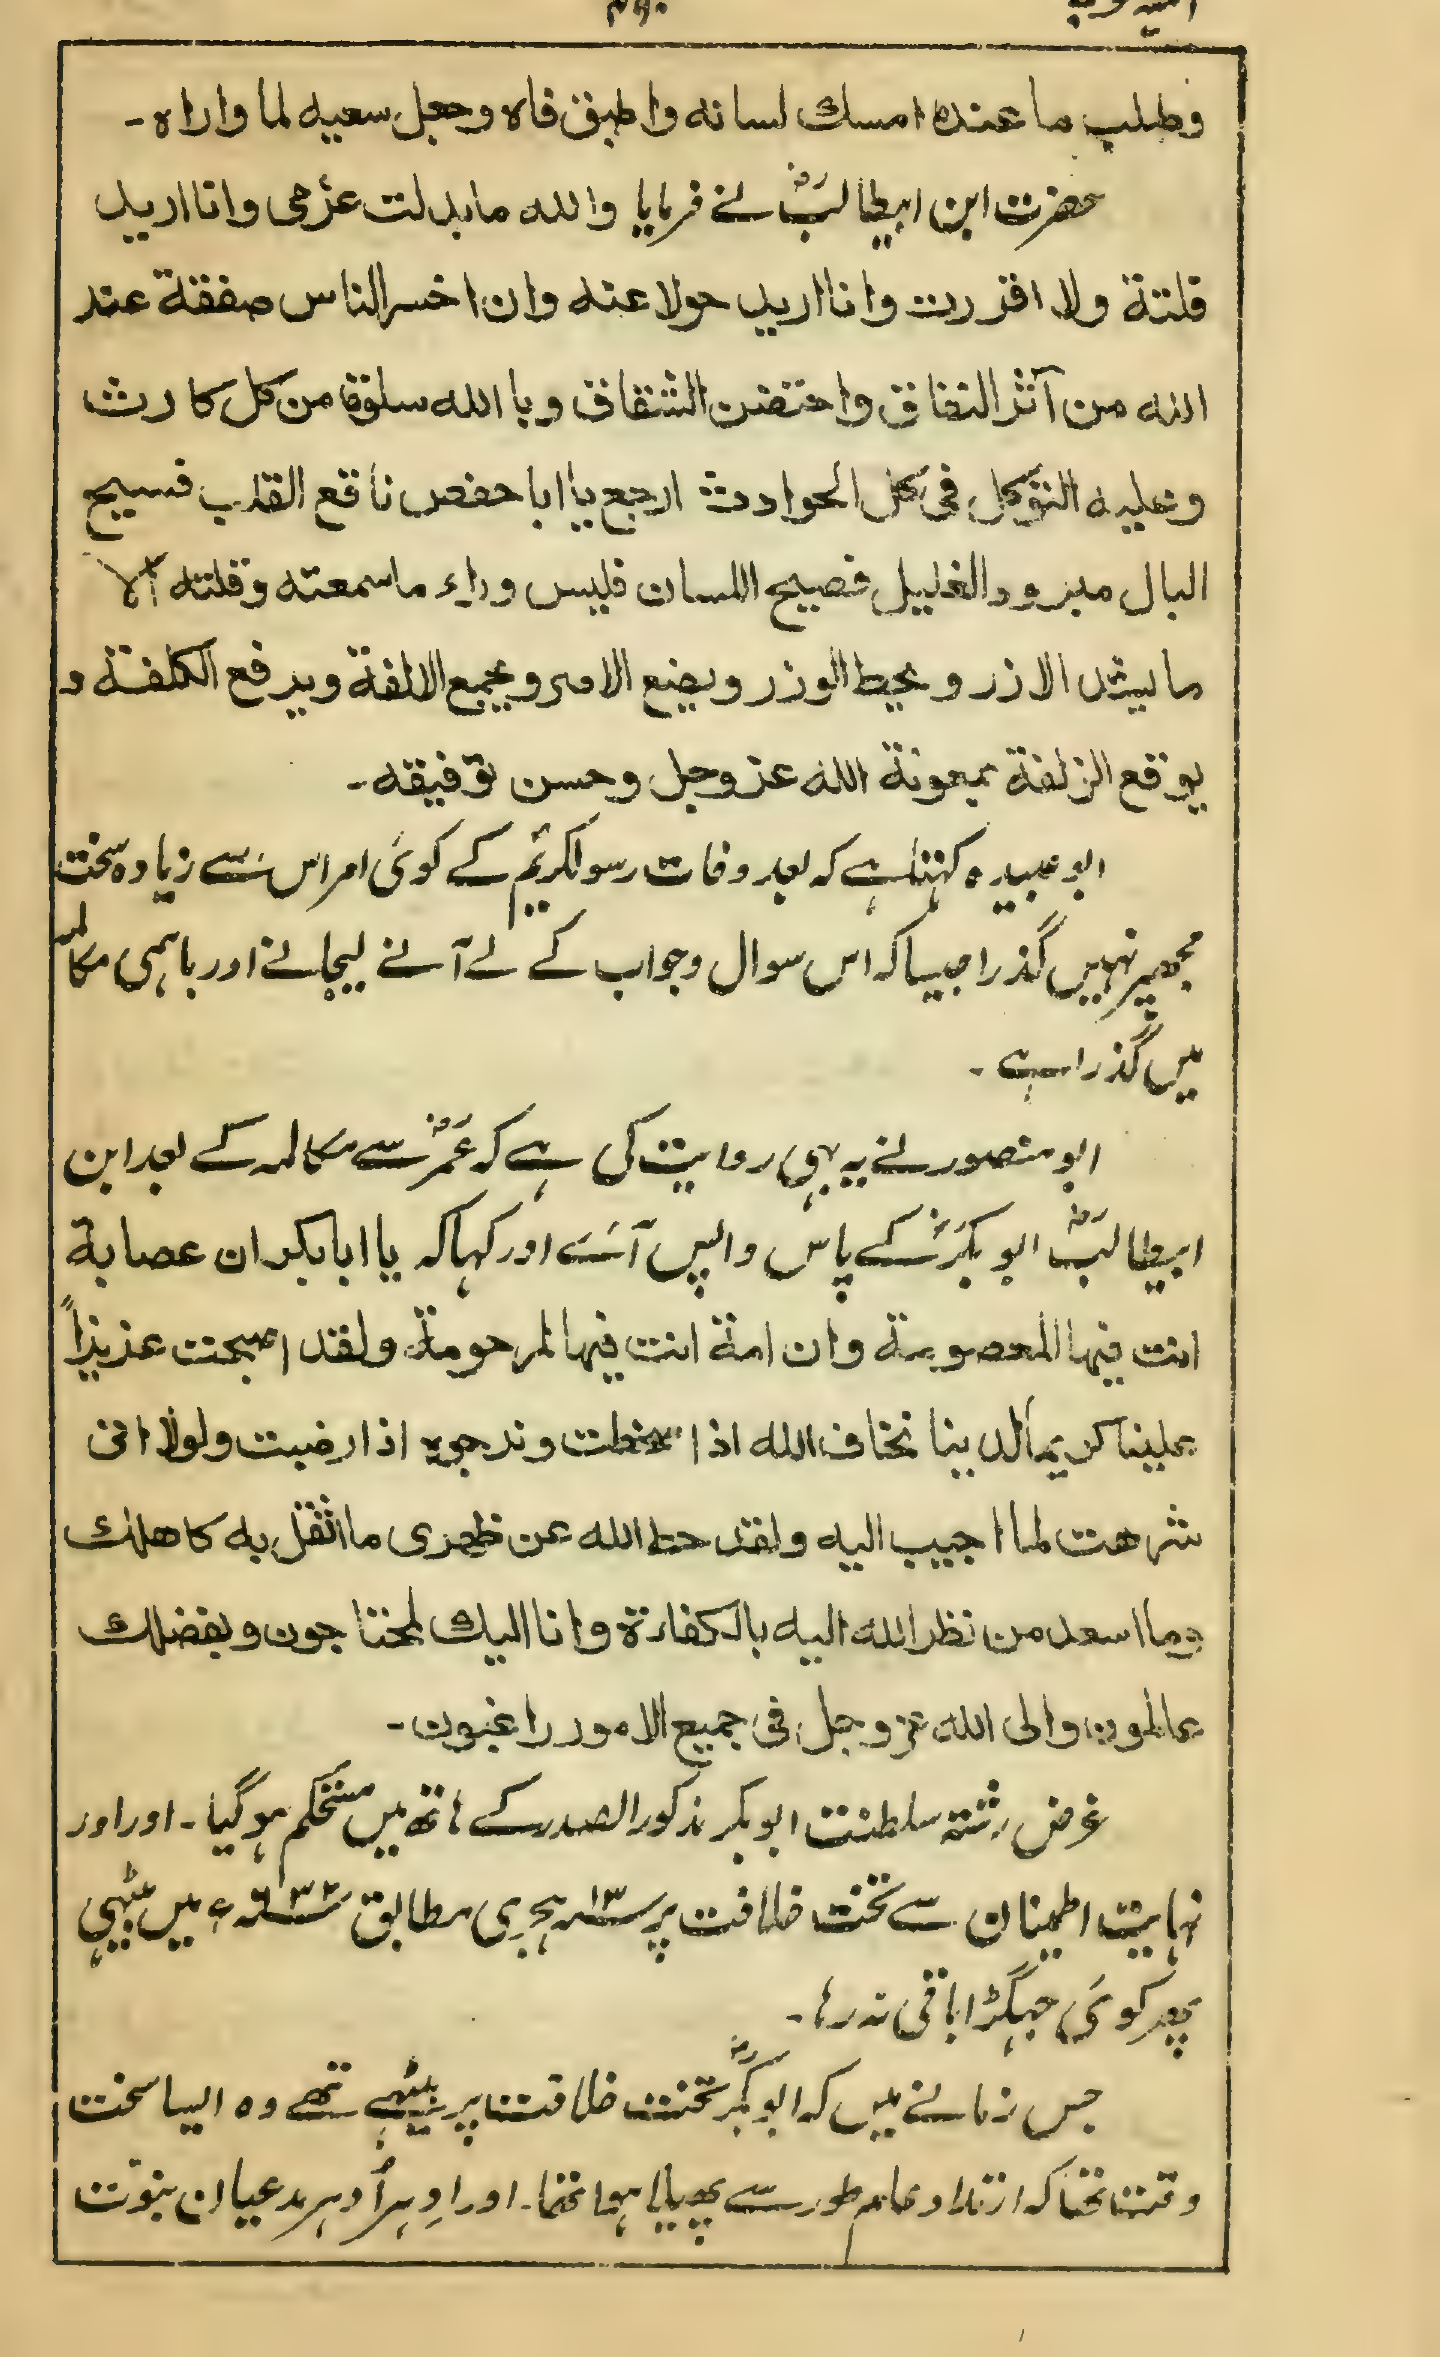 وطلب ما عنده امسك لسانه واطبق فاه وجعل سعيه لما واراه۔
حضرت ابن ابیطالبؓ نے فرمایا والله مابدلت عزمی وانا اريد
قلتة ولا اقررت وانا اريد حولا عنه وان اخسر الناس صفقة عند
الله من آثر النفاق واحتضن الشقاق وبا الله سلوة من كل كارث
وعليه التوكل فى كل الحوادث ارجع يا ابا حفص ناقع القلب فسيح
البال مبرود الغليل فصيح اللسان فليس وراء ماسمعته وقلته الا
ما يشد الازر ويحيط الوزر ويضع الاصر ويجمع الالفة ويرفع الكلفة و
يوقع الزلفة بمعونة الله عز وجل وحسن توفيقه۔
ابو عبیدہ کہتا ہے کہ بعد وفات رسولکریمؐ کے کوئی امر اس سے زیادہ سخت
مجھپر نہیں گذرا جیسا کہ اس سوال وجواب کے لے آنے لیجانے اور باہمی مکالمہ
میں گذرا ہے۔
ابو منصور نے یہ بہی روایت کی ہے کہ عمرؓ سے مکالمہ کے بعد ابن
ابیطالبؓ ابو بکرؓ کے پاس واپس آئے اور کہا کہ یا ابا بکر ان عصابة
انت فيها لمعصومة وان امة انت فيها لمرحومة ولقد اصبحت عزيزاً
علينا كريما لدينا نخاف الله اذا سخطت ونرجوه اذا رضيت ولولا انى
شرهت لما اجيب اليه ولقد حط الله عن ظهرى ما اثقل به كاهلك
وما اسعد من نظر الله اليه بالكفارة وانا اليك لمحتاجون وبفضلك
عالمون والى الله عز وجل فى جميع الامور راغبون۔
غرض رشتہ سلطنت ابو بکر مذکور الصدر کے ہاتھ میں مستحکم ہو گیا۔ اور اور
نہایت اطمینان سے تخت خلافت پر سنہ ۱۳ ہجری مطابق سنہ ۶۳۲ء میں بیٹہے
پھر کوئی جہگڑا باقی نہ رہا۔
جس زمانے میں کہ ابو بکرؓ تخت خلافت پر بیٹہے تھے وہ ایسا سخت
وقت تھا کہ ارتداد عام طور سے پھیلا ہوا تھا۔ اور اِدہر اُدہر مدعیان نبوّت